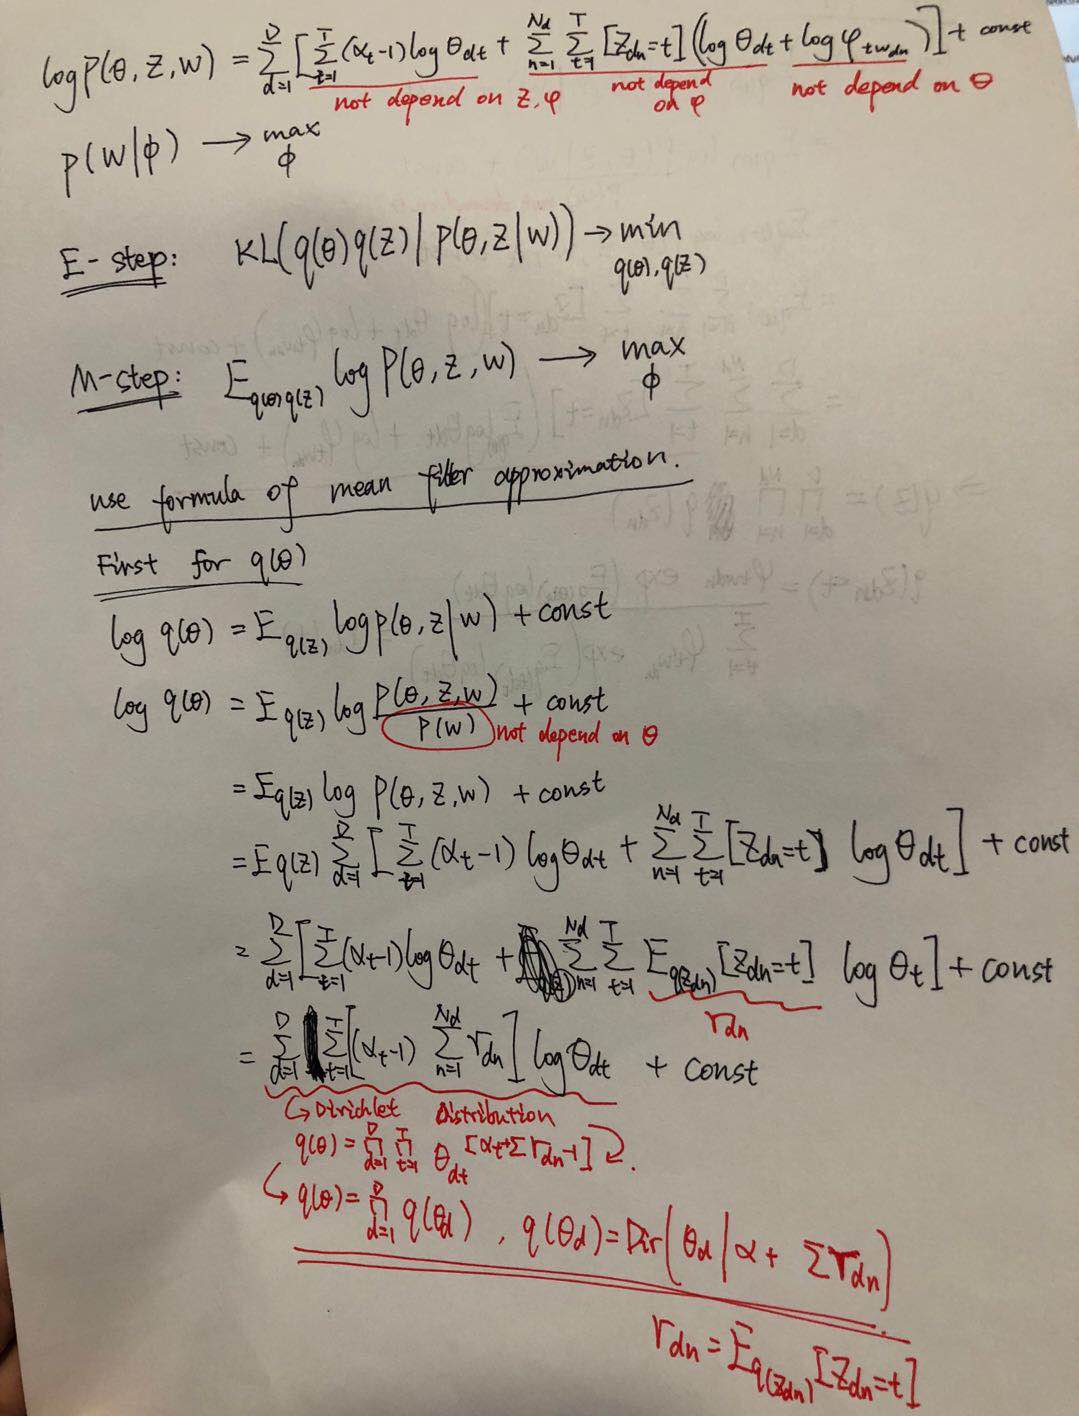 log P(θ, Z, W) = Σ_{d=1}^{D} [ Σ_{t=1}^{T} (α_t-1) log θ_dt + Σ_{n=1}^{N_d} Σ_{t=1}^{T} [Z_dn=t] (log θ_dt + log φ_{t w_dn}) ] + const
not depend on z, φ not depend on φ not depend on θ
P(W|ϕ) → max_ϕ
E-step: KL(q(θ)q(z) | P(θ, Z|W)) → min_{q(θ), q(z)}
M-step: E_{q(θ)q(z)} log P(θ, Z, W) → max_ϕ
use formula of mean filter approximation.
First for q(θ)
log q(θ) = E_{q(z)} log p(θ, z|w) + const
log q(θ) = E_{q(z)} log P(θ, Z, W) / P(W) + const
not depend on θ
= E_{q(z)} log P(θ, Z, W) + const
= E q(z) Σ_{d=1}^{D} [ Σ_{t=1}^{T} (α_t-1) log θ_dt + Σ_{n=1}^{N_d} Σ_{t=1}^{T} [Z_dn=t] log θ_dt ] + const
= Σ_{d=1}^{D} [ Σ_{t=1}^{T} (α_t-1) log θ_dt + Σ_{n=1}^{N_d} Σ_{t=1}^{T} E_{q(z_dn)} [Z_dn=t] log θ_t ] + const
r_dn
= Σ_{d=1}^{D} Σ_{t=1}^{T} [(α_t-1) Σ_{n=1}^{N_d} r_dn ] log θ_dt + const
↪ Dirichlet Distribution
q(θ) = Π_{d=1}^{D} Π_{t=1}^{T} θ_dt^{[α_t+Σr_dn-1]}
↪ q(θ) = Π_{d=1}^{D} q(θ_d) , q(θ_d) = Dir(θ_d | α + Σ r_dn)
r_dn = E_{q(z_dn)} [Z_dn=t]